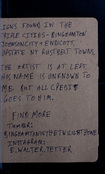 SIGNS FOUND IN THE
TRIPLE CITIES - BINGHAMTON
JOHNSON CITY + ENDICOTT,
UPSTATE NY RUSTBELT TOWNS.
THE ARTIST IS AT LEFT,
HIS NAME IS UNKNOWN TO
ME. BUT ALL CREDIT
GOES TO HIM.
FIND MORE
TUMBLR:
INSTAGRAM:
E.WALTER.TETTER